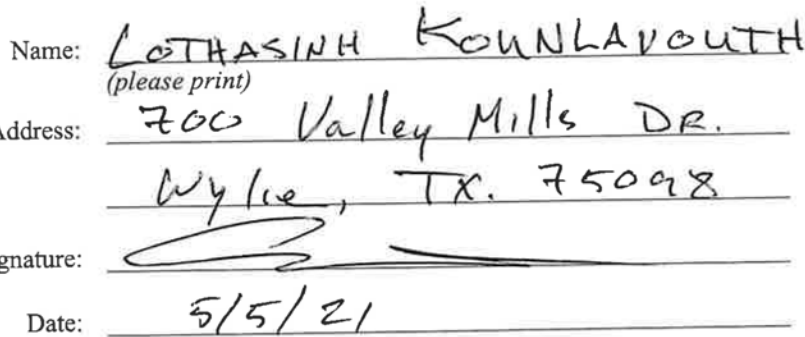 Name: LOTHASINH KOUNLAVOUTH
(please print)
Address: 700 Valley Mills DR.
Wylie, TX. 75098
gnature:
Date: 5/5/21